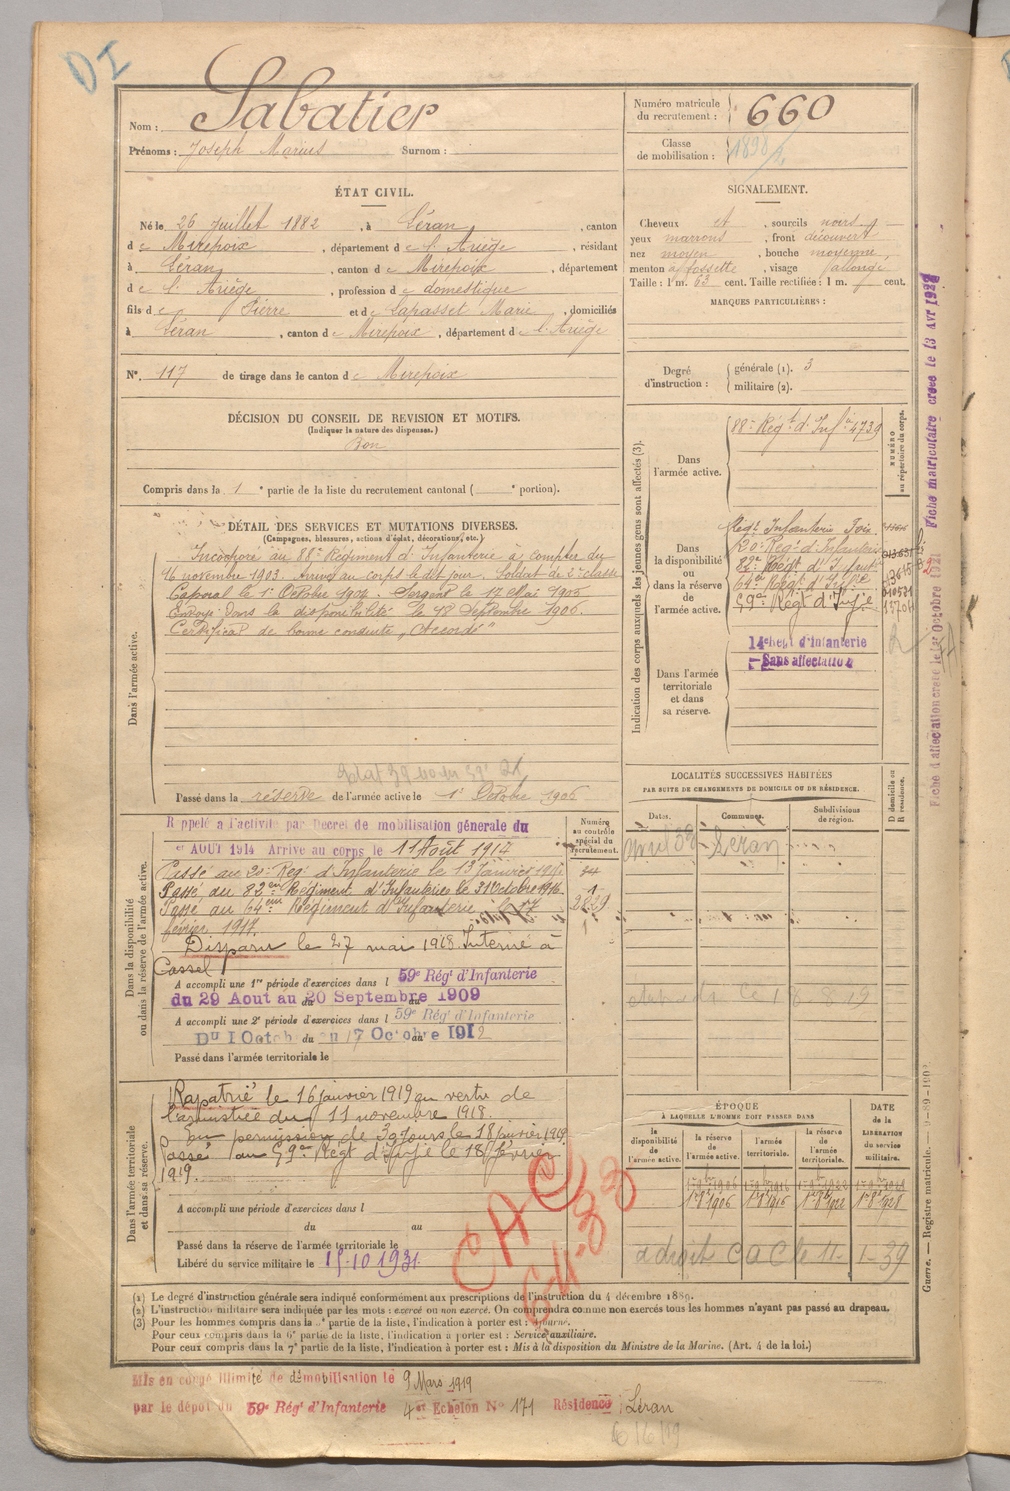 DI
Nom : Sabatier
Prénoms : Joseph Marius Surnom :
Numéro matricule du recrutement : 660
Classe de mobilisation : 1898
ÉTAT CIVIL.
Né le 26 Juillet 1882, à Léran, canton
de Mirepoix, département de l'Ariège, résidant
à Léran, canton de Mirepoix, département
de l'Ariège, profession de domestique
fils de Pierre et de Lapasset Marie, domiciliés
à Léran, canton de Mirepoix, département de l'Ariège
N° 117 de tirage dans le canton de Mirepoix
SIGNALEMENT.
Cheveux et, sourcils noirs
yeux marrons, front découvert
nez moyen, bouche moyenne,
menton à fossette, visage allongé
Taille : 1m. 63 cent. Taille rectifiée : 1 m. cent.
MARQUES PARTICULIÈRES :
Degré d'instruction : générale (1). 3
militaire (2).
DÉCISION DU CONSEIL DE REVISION ET MOTIFS.
(Indiquer la nature des dispenses.)
Bon
Compris dans la 1e partie de la liste du recrutement cantonal ( e portion).
DÉTAIL DES SERVICES ET MUTATIONS DIVERSES.
(Campagnes, blessures, actions d'éclat, décorations, etc.)
Dans l'armée active.
Incorporé au 88e Régiment d'Infanterie à compter du
16 novembre 1903. Arrivé au corps le dit jour. Soldat de 2e classe
Caporal le 1er Octobre 1904. Sergent le 17 Mai 1905
Envoyé dans la disponibilité le 18 Septembre 1906.
Certificat de bonne conduite „Accordé"
Passé dans la réserve de l'armée active le 1er Octobre 1906
Indication des corps auxquels les jeunes gens sont affectés (3).
Dans l'armée active.
88e Régt d'Infie 4739
NUMÉRO au répertoire du corps.
Dans la disponibilité ou dans la réserve de l'armée active.
Régt Infanterie Foix
20e Régt d'Infanterie
82e Régt d'Infie
64e Régt d'Infie
59e Régt d'Infie
14e Régt d'Infanterie
Sans affectation
Dans l'armée territoriale et dans sa réserve.
Fiche matriculaire créée le 13 AVR
Fiche d'affectation créée le 1er Octobre 1921
Dans la disponibilité ou dans la réserve de l'armée active.
Rappelé à l'activité par Décret de mobilisation générale du
1er AOUT 1914 Arrivé au corps le 11 Août 1914
Passé au 20e Régt d'Infanterie le 13 Janvier
Passé au 82eme Régiment d'Infanterie le 31 Octobre 1916
Passé au 64eme Régiment d'Infanterie le 17
février 1917.
Disparu le 27 mai 1918. Interné à
Cassel
A accompli une 1re période d'exercices dans l 59e Régt d'Infanterie
du 29 Aout au 20 Septembre 1909
A accompli une 2e période d'exercices dans l 59e Régt d'Infanterie
Du 1 Octob du au 17 Octobre 1912
Passé dans l'armée territoriale le
Numéro au contrôle spécial du recrutement.
2829
LOCALITÉS SUCCESSIVES HABITÉES
PAR SUITE DE CHANGEMENTS DE DOMICILE OU DE RÉSIDENCE.
Dates. Communes. Subdivisions de région. D domicile ou R résidence.
Avril 38 Léran
Dans l'armée territoriale et dans sa réserve.
Rapatrié le 16 janvier 1919 en vertu de
l'armistice du 11 novembre 1918.
En permission de 30 jours le 18 janvier 1919
Passé au 59e Régt d'Infie le 18 février
1919.
A accompli une période d'exercices dans l
du au
Passé dans la réserve de l'armée territoriale le
Libéré du service militaire le 15.10.1931
CAC
ÉPOQUE À LAQUELLE L'HOMME DOIT PASSER DANS
la disponibilité de l'armée active. la réserve de l'armée active. l'armée territoriale. la réserve de l'armée territoriale.
DATE de la LIBÉRATION du service militaire.
1er 8bre 1906 1er 8bre 1916 1er 8bre 1922 1er 8bre 1928
a droit CAC le 11-1-39
Guerre. — Registre matricule.
(1) Le degré d'instruction générale sera indiqué conformément aux prescriptions de l'instruction du 4 décembre 1889.
(2) L'instruction militaire sera indiquée par les mots : exercé ou non exercé. On comprendra comme non exercés tous les hommes n'ayant pas passé au drapeau.
(3) Pour les hommes compris dans la e partie de la liste, l'indication à porter est : Ajourné.
Pour ceux compris dans la 6e partie de la liste, l'indication à porter est : Service auxiliaire.
Pour ceux compris dans la 7e partie de la liste, l'indication à porter est : Mis à la disposition du Ministre de la Marine. (Art. 4 de la loi.)
Mis en congé illimité de démobilisation le 9 Mars 1919
par le dépôt du 59e Régt d'Infanterie 4e Echelon N° 171 Résidence : Léran